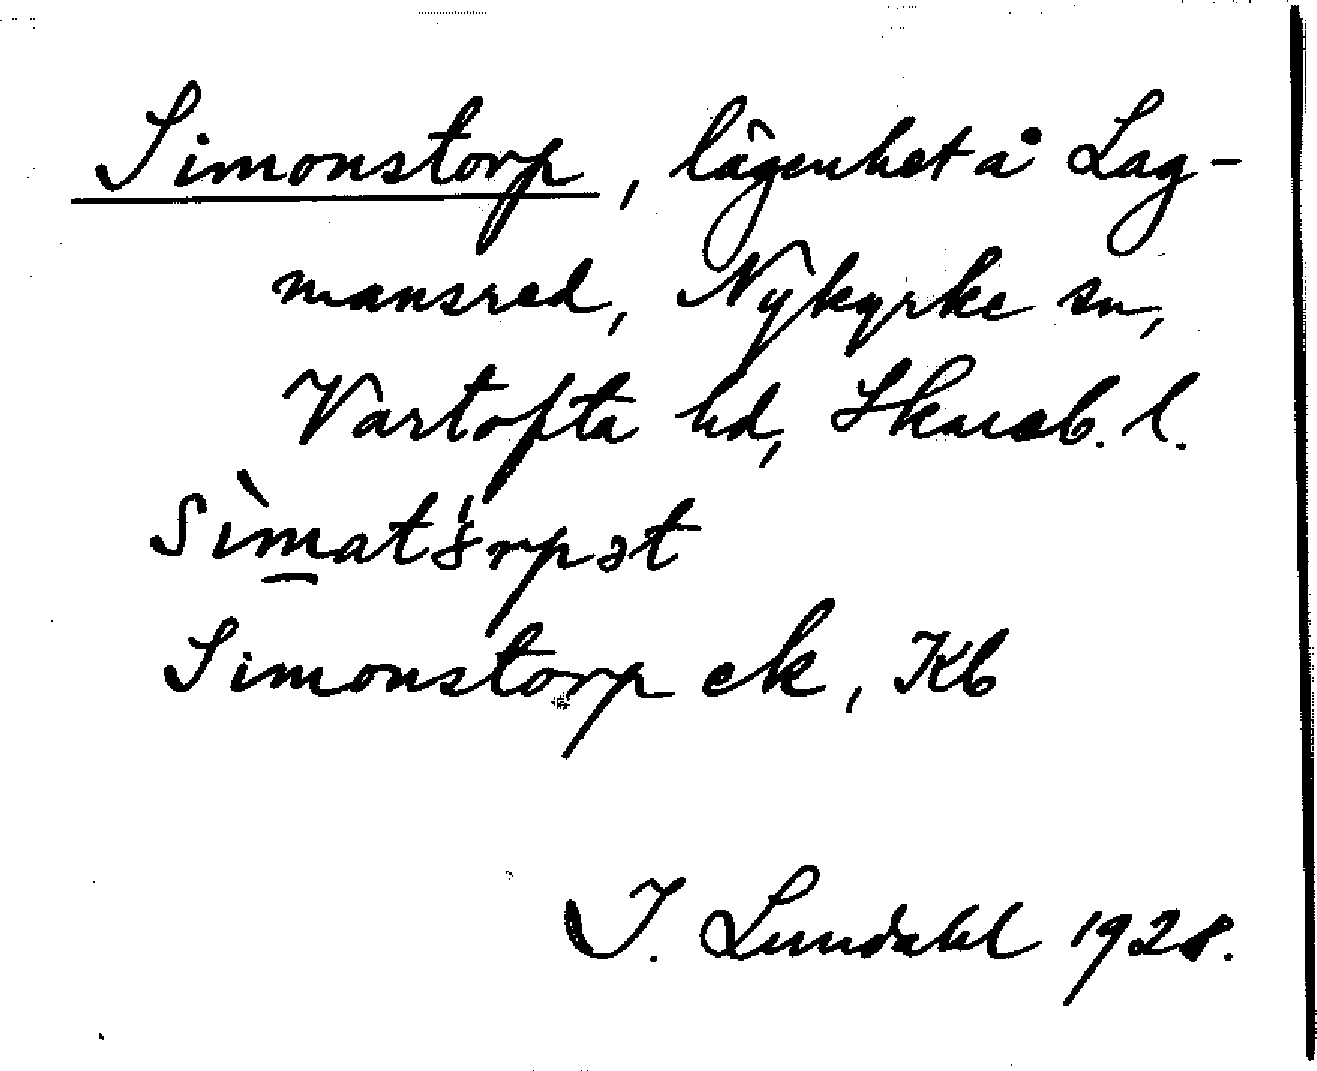 Simonstorp, lägenhet å Lag-
mansred, Nykyrke sn,
Vartofta hd, Skarab. l.
Simonstorp ek, Kb
I. Lundahl 1928.